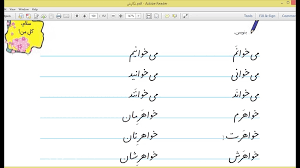 Adobe Reader
Tools Fill & Sign Comment
بنویس.
می‌خوانم می‌خوانیم
می‌خوانی می‌خوانید
می‌خواند می‌خوانند
خواهرم خواهرمان
خواهرت خواهرتان
خواهرش خواهرشان